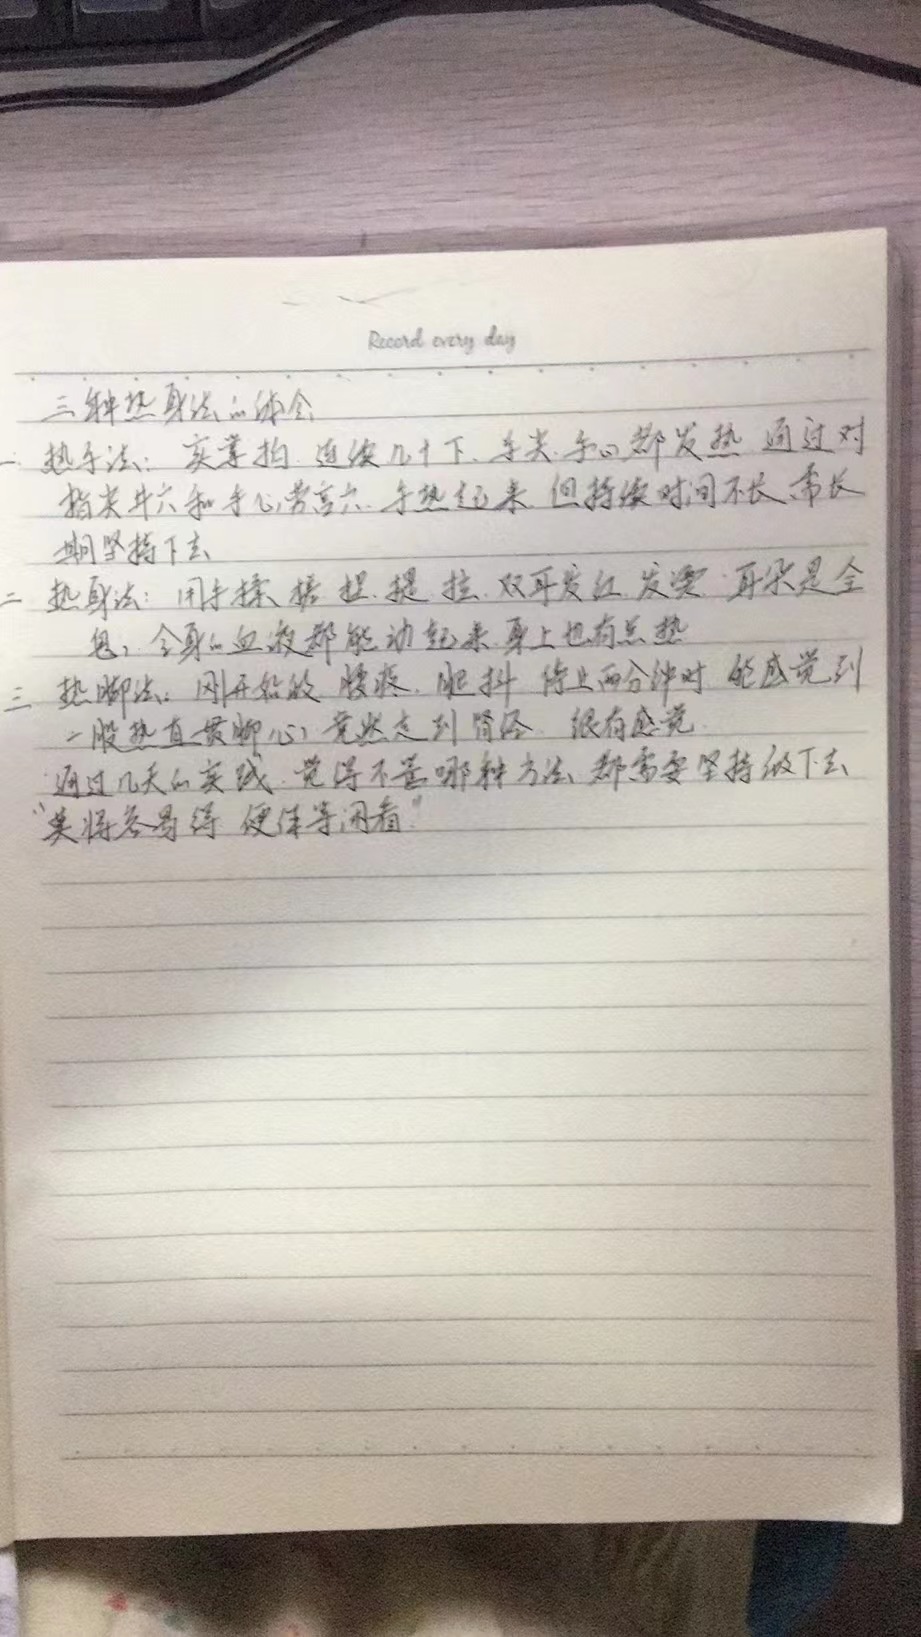 Record every day
三种热身法的体会
一. 热手法: 实掌拍. 连续几十下. 手尖. 手心都发热 通过对
指尖井穴和手心劳宫穴. 手热起来. 但持续时间不长, 需长
期坚持下去
二 热身法: 用手揉 搓 捏. 提. 拉. 双耳发红. 发烫. 耳朵是全
息, 全身的血液都能动起来. 身上也有点热
三 热脚法: 刚开始放 腰疼. 腿抖 停止两分钟时 能感觉到
一股热直贯脚心, 竟然走到肾经. 很有感觉.
通过几天的实践. 觉得不管哪种方法, 都需要坚持做下去
"莫将容易得 便作等闲看"